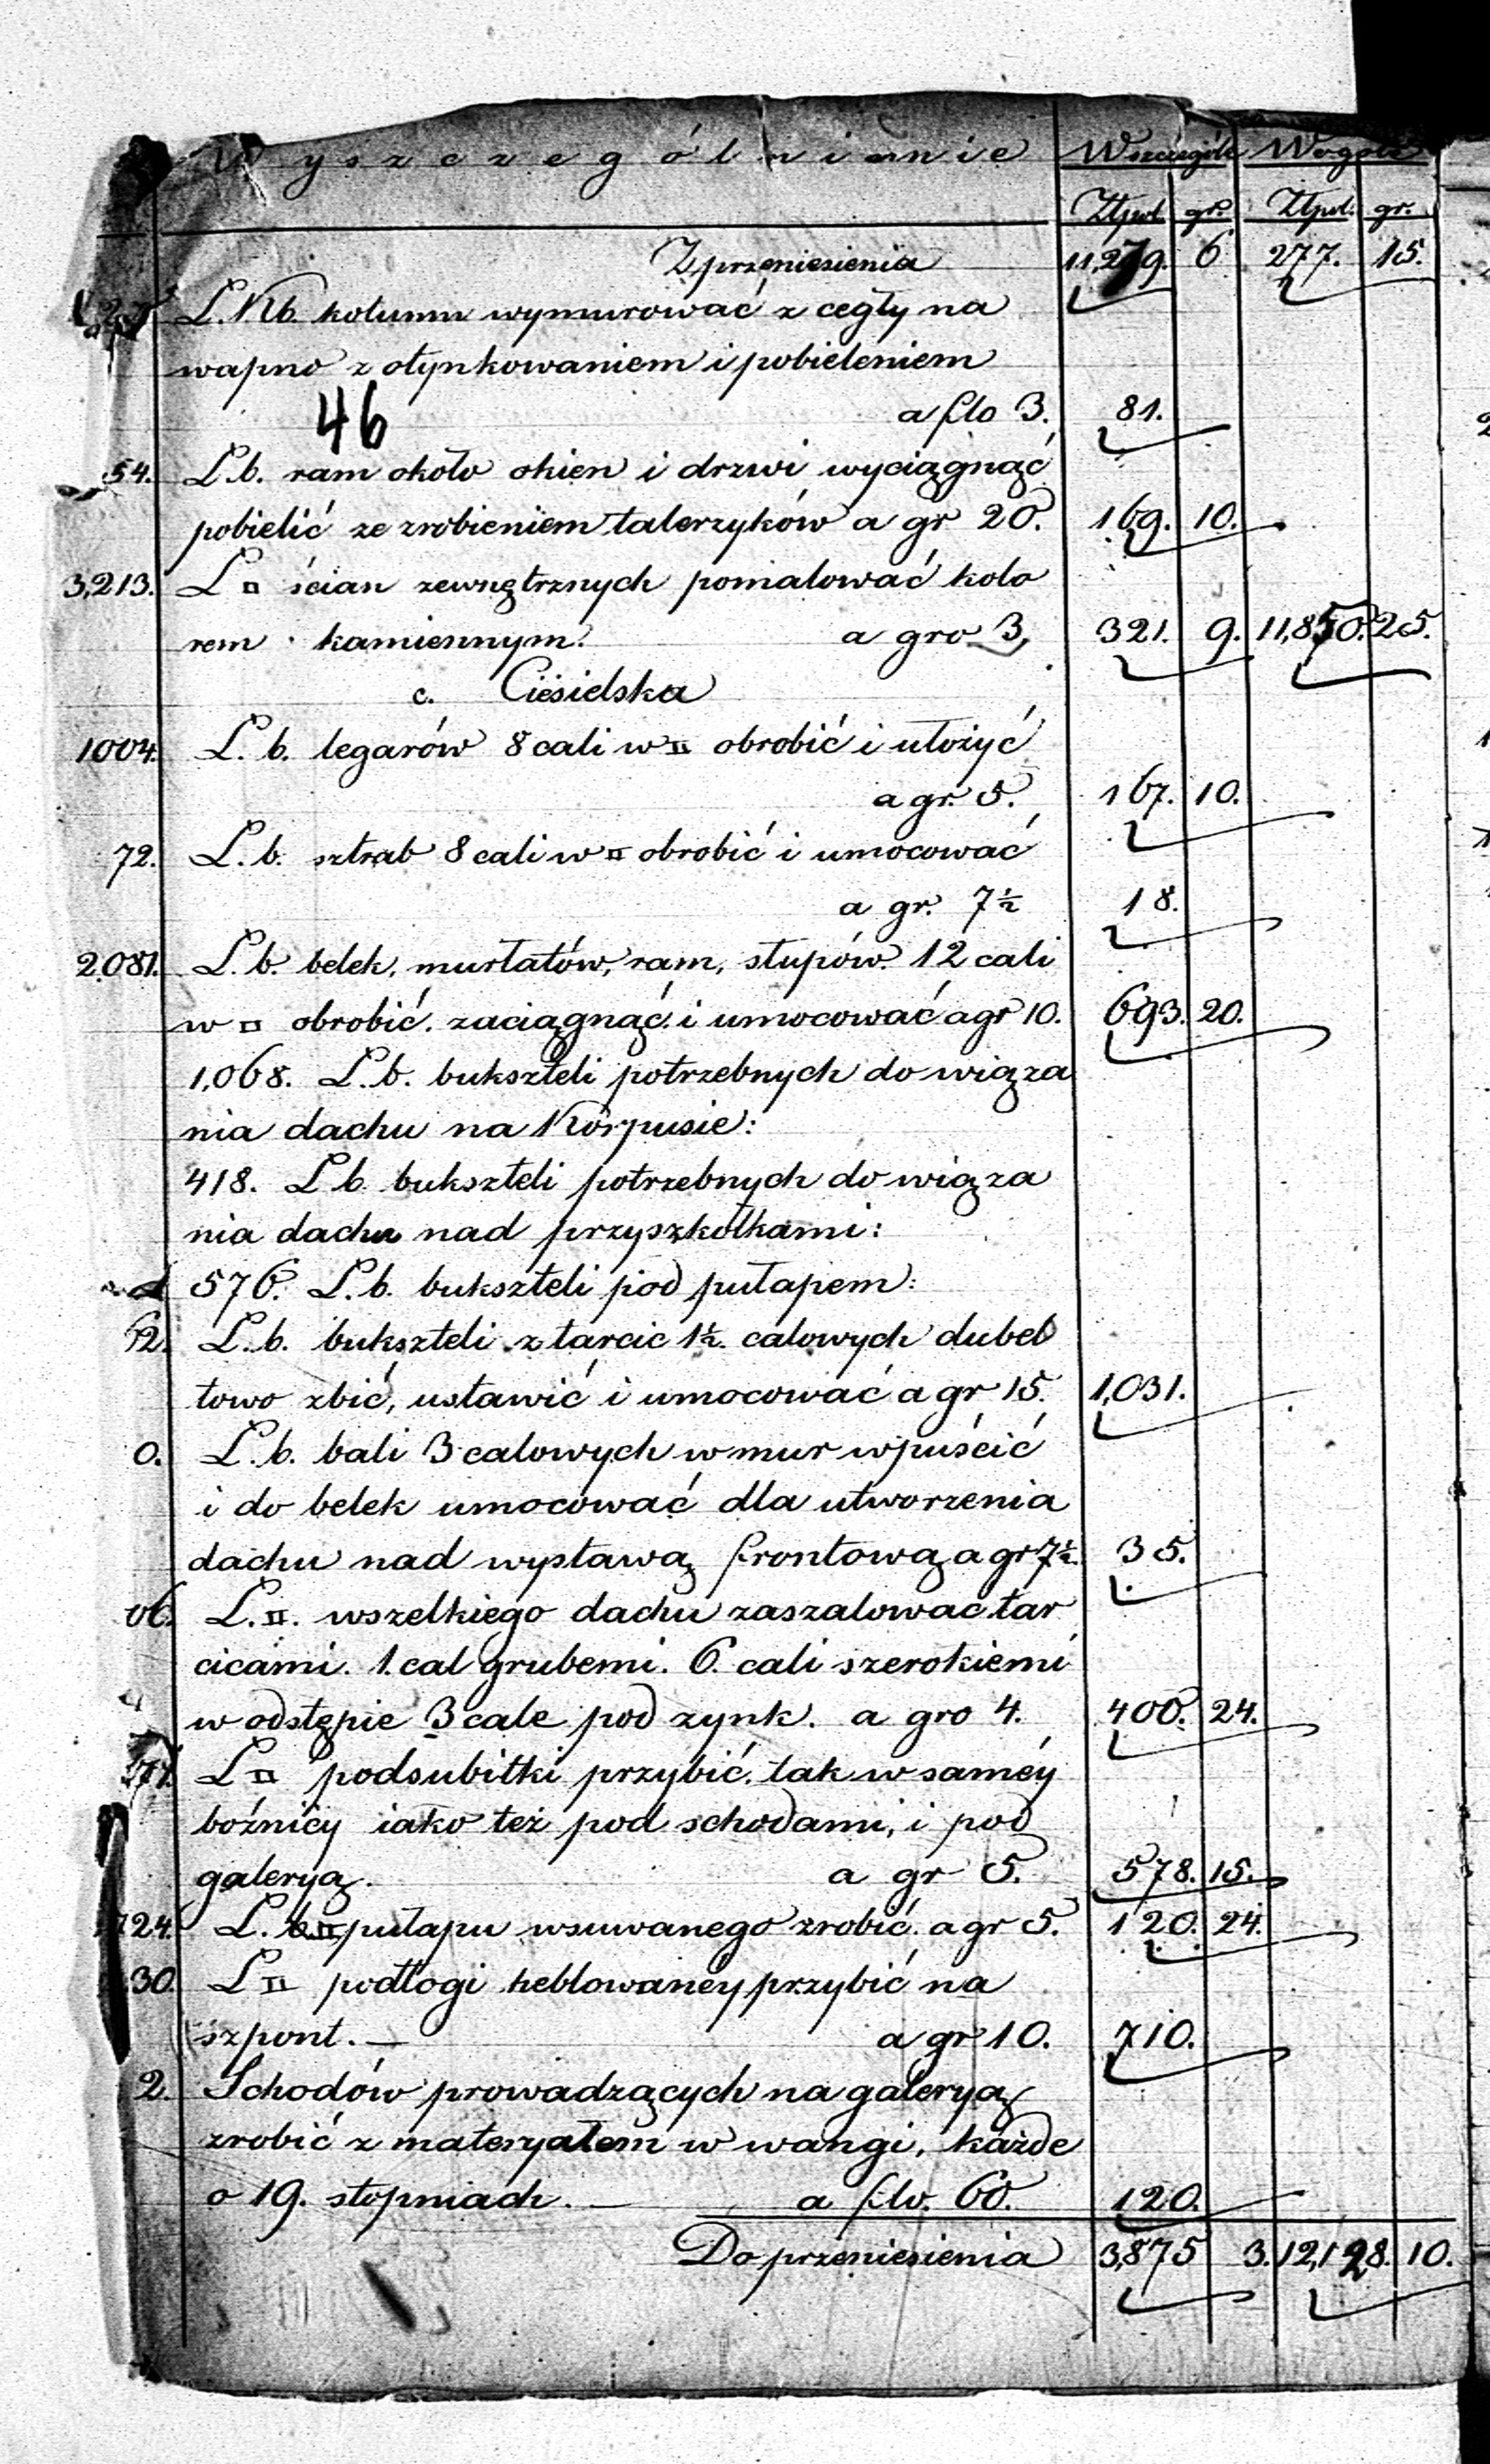 Wyszczególnienie Wszczególe Wogóle
Złpol. gr. Złpol. gr.
Z przeniesienia 11,279. 6 277. 15.
L. Kb. kolumn wymurować z cegły na
wapno z otynkowaniem i pobieleniem
46 a flo 3. 81.
54. L.b. ram około okien i drzwi wyciągnąć
pobielić ze zrobieniem talerzyków a gr 20. 169. 10.
3,213. L □ ścian zewnętrznych pomalować kolo
rem kamiennym. a gro 3, 321. 9. 11,850. 25.
c. Ciesielska
1004. L. b. legarów 8 cali w □ obrobić i ułożyć
a gr. 5. 167. 10.
72. L. b. sztrab 8 cali w □ obrobić i umocować
a gr. 7½ 18.
2081. L. b. belek, murłatów, ram, słupów. 12 cali
w □ obrobić. zaciągnąć. i umocować a gr 10. 693. 20.
1,068. L. b. bukszteli potrzebnych do wiąza
nia dachu na Korpusie:
418. L b. bukszteli potrzebnych do wiąza
nia dachu nad przyszkółkami:
576. L. b. bukszteli pod pułapem:
62. L. b. bukszteli z tarcic 1½. calowych dubel
towo zbić, ustawić i umocować a gr 15. 1,031.
0. L. b. bali 3 calowych w mur wpuścić
i do belek umocować dla utworzenia
dachu nad wystawą frontową a gr 7½. 35.
06. L. □. wszelkiego dachu zaszalować tar
cicami. 1. cal grubemi. 6. cali szerokiemi
w odstępie 3 cale pod zynk. a gro 4. 400. 24.
71. L □ podsubitki przybić. tak w saméy
boźnicy iako też pod schodami, i pod
galeryą. a gr 5. 578. 15.
724. L. □ pułapu wsuwanego zrobić. a gr 5. 120. 24.
30. L □ podłogi heblowanéy przybić na
szpont. — a gr 10. 710.
2. Schodów prowadzących na galeryą
zrobić z materyałem w wangi, każde
o 19. stopniach. — a flo. 60. 120.
Do przeniesienia 3,875 3. 12,128. 10.